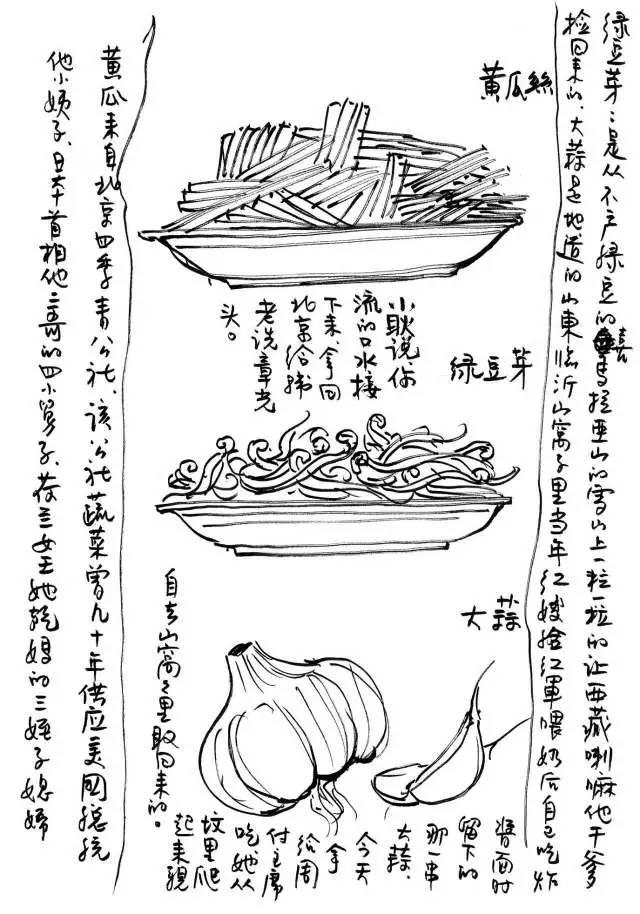 绿豆芽：是从不产绿豆的喜马拉亚山的雪山上一粒一粒的让西藏喇嘛他干爹
捡回来的、大蒜是地道的山東临沂山窝子里当年红嫂给红軍喂奶后自己吃炸
醬面时
留下的
那一串
大蒜、
今天
拿
给周
付主席
吃她从
坟里爬
起来親
自去山窝窝里取回来的。
黄瓜絲
小耿说、你
流的口水接
下来、拿回
北京给
老章光
头。
绿豆芽
大蒜
黄瓜来自北京四季青公社、该公社蔬菜曾九十年供应美國總統
他小姨子、日本首相他三哥的四小舅子、荷兰女王她乾妈的三姪子媳婦